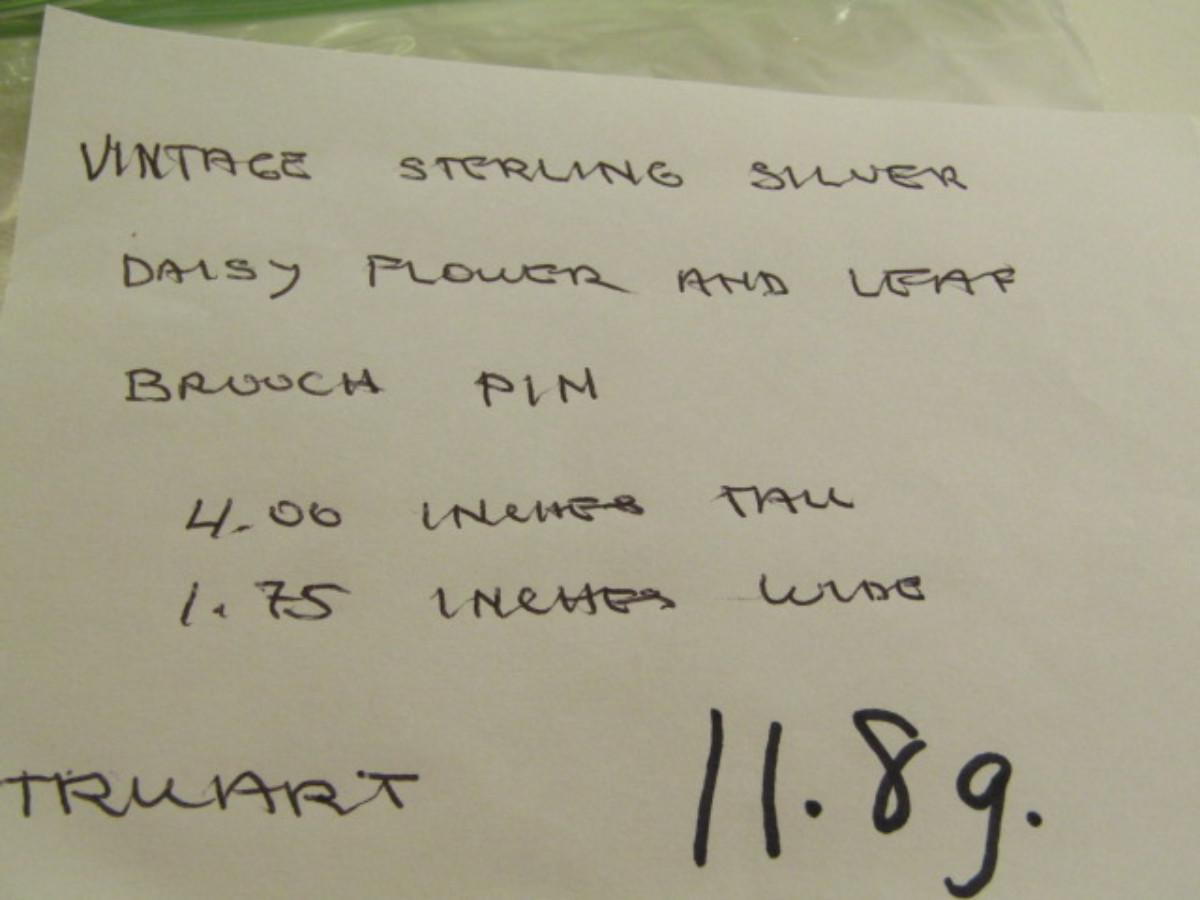 VINTAGE STERLING SILVER
DAISY FLOWER AND LEAF
BROOCH PIN
4.00 INCHES TALL
1.75 INCHES WIDE
TRUART 11.8g.